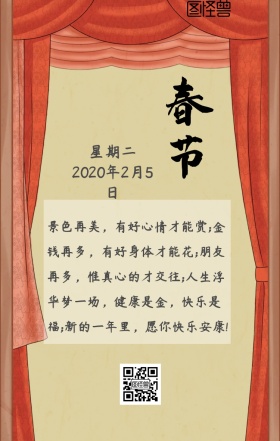 图怪兽
春节
星期二
2020年2月5
日
景色再美，有好心情才能赏;金
钱再多，有好身体才能花;朋友
再多，惟真心的才交往;人生浮
华梦一场，健康是金，快乐是
福;新的一年里，愿你快乐安康!
图怪兽